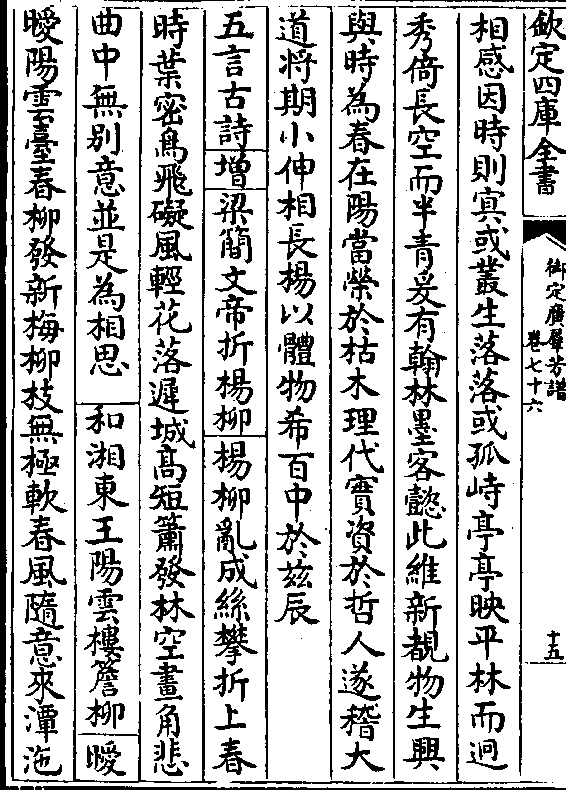 欽定四庫全書
御定廣羣芳譜
卷七十六
十五
相感因時則寘或叢生落落或孤峙亭亭映平林而迥
秀倚長空而半青爰有翰林墨客懿此維新覩物生興
與時為春在陽當榮於枯木理代實資於哲人遂稽大
道將期小伸相長楊以體物希百中於茲辰
五言古詩增梁簡文帝折楊柳楊柳亂成絲攀折上春
時葉密鳥飛礙風輕花落遲城高短簫發林空畫角悲
曲中無别意並是為相思 和湘東王陽雲樓簷柳曖
曖陽雲臺春柳發新梅柳枝無極軟春風隨意來潭沲